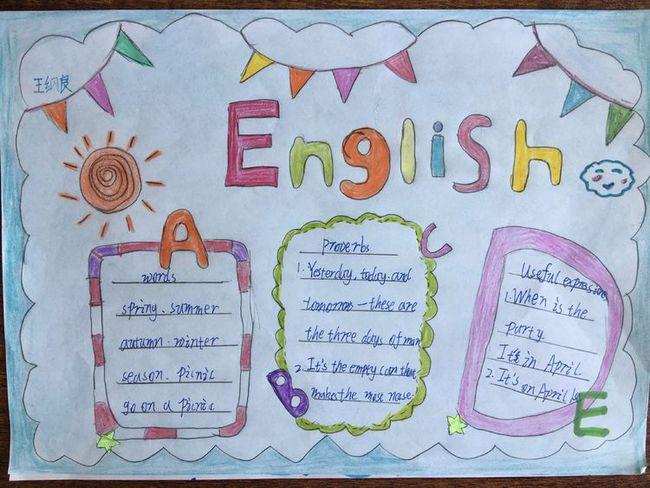 王纲良
English
A
words
spring. summer
autumn. winter
season. picnic
go on a picnic
B
C
Proverbs
1. Yesterday, today. and
tomorrow — these are
the three days of man
2. It's the empty can that
makes the most noise.
D
Useful expressions
1. When is the
party
It's in April
2. It's on April
E